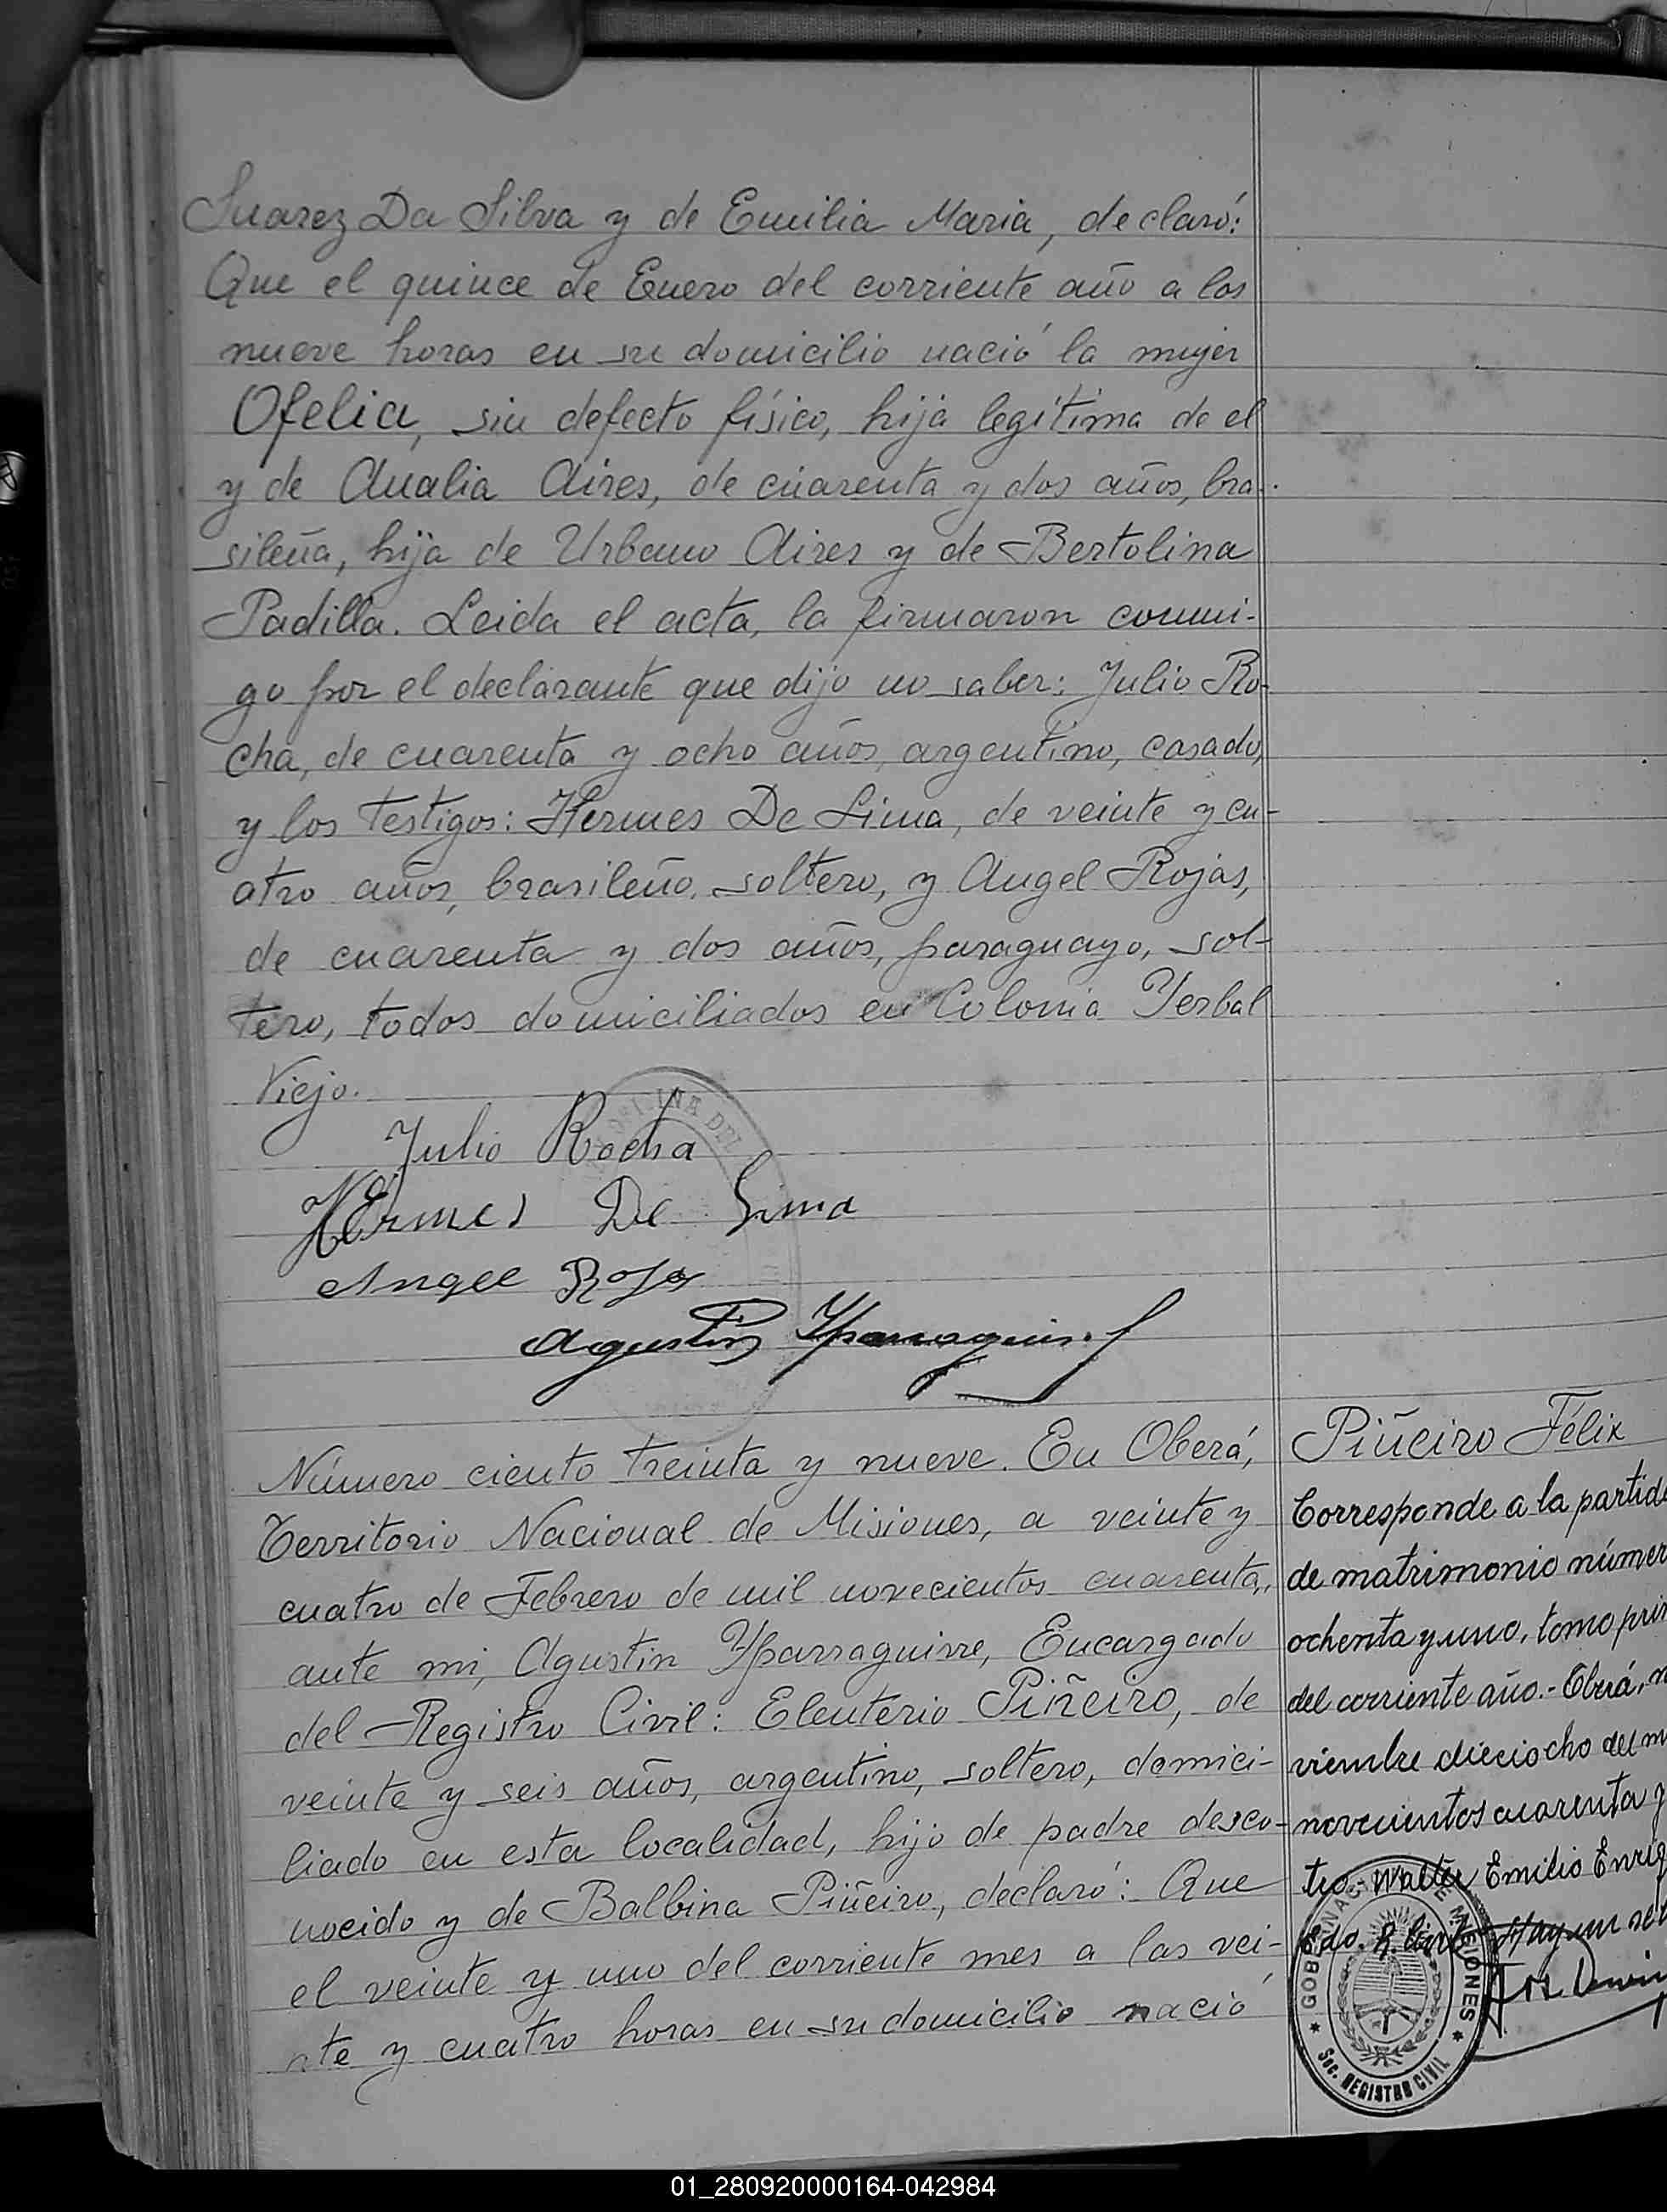 Suarez Da Silva y de Emilia Maria, declaró:
Que el quince de Enero del corriente año a las
nueve horas en su domicilio nació la mujer
Ofelia, sin defecto físico, hija legítima de el
y de Analia Aires, de cuarenta y dos años, bra-
sileña, hija de Urbano Aires y de Bertolina
Padilla. Leida el acta, la firmaron conmi-
go por el declarante que dijo no saber: Julio Ro-
cha, de cuarenta y ocho años, argentino, casado,
y los testigos: Hermes De Lima, de veinte y cu-
atro años, brasileño, soltero, y Angel Rojas,
de cuarenta y dos años, paraguayo, sol-
tero, todos domiciliados en Colonia Yerbal
Viejo.
Julio Rocha
Hermes De Lima
Angel Rojas
Agustin Yparraguirre
Número ciento treinta y nueve. En Oberá,
Territorio Nacional de Misiones, a veinte y
cuatro de Febrero de mil novecientos cuarenta,
ante mi, Agustin Yparraguirre, Encargado
del Registro Civil: Eleuterio Piñeiro, de
veinte y seis años, argentino, soltero, domici-
liado en esta localidad, hijo de padre desco-
nocido y de Balbina Piñeiro, declaró: Que
el veinte y uno del corriente mes a las vei-
nte y cuatro horas en su domicilio nació
Piñeiro Félix
Corresponde a la partida
de matrimonio númer
ochenta y uno, tomo prim
del corriente año.- Oberá, n
viembre dieciocho del m
novecientos cuarenta y
tro.- Walter Emilio Enriq
Edo. R. Civil Hay un sel
GOBERNACION DE MISIONES
Sec. REGISTRO CIVIL
01_280920000164-042984